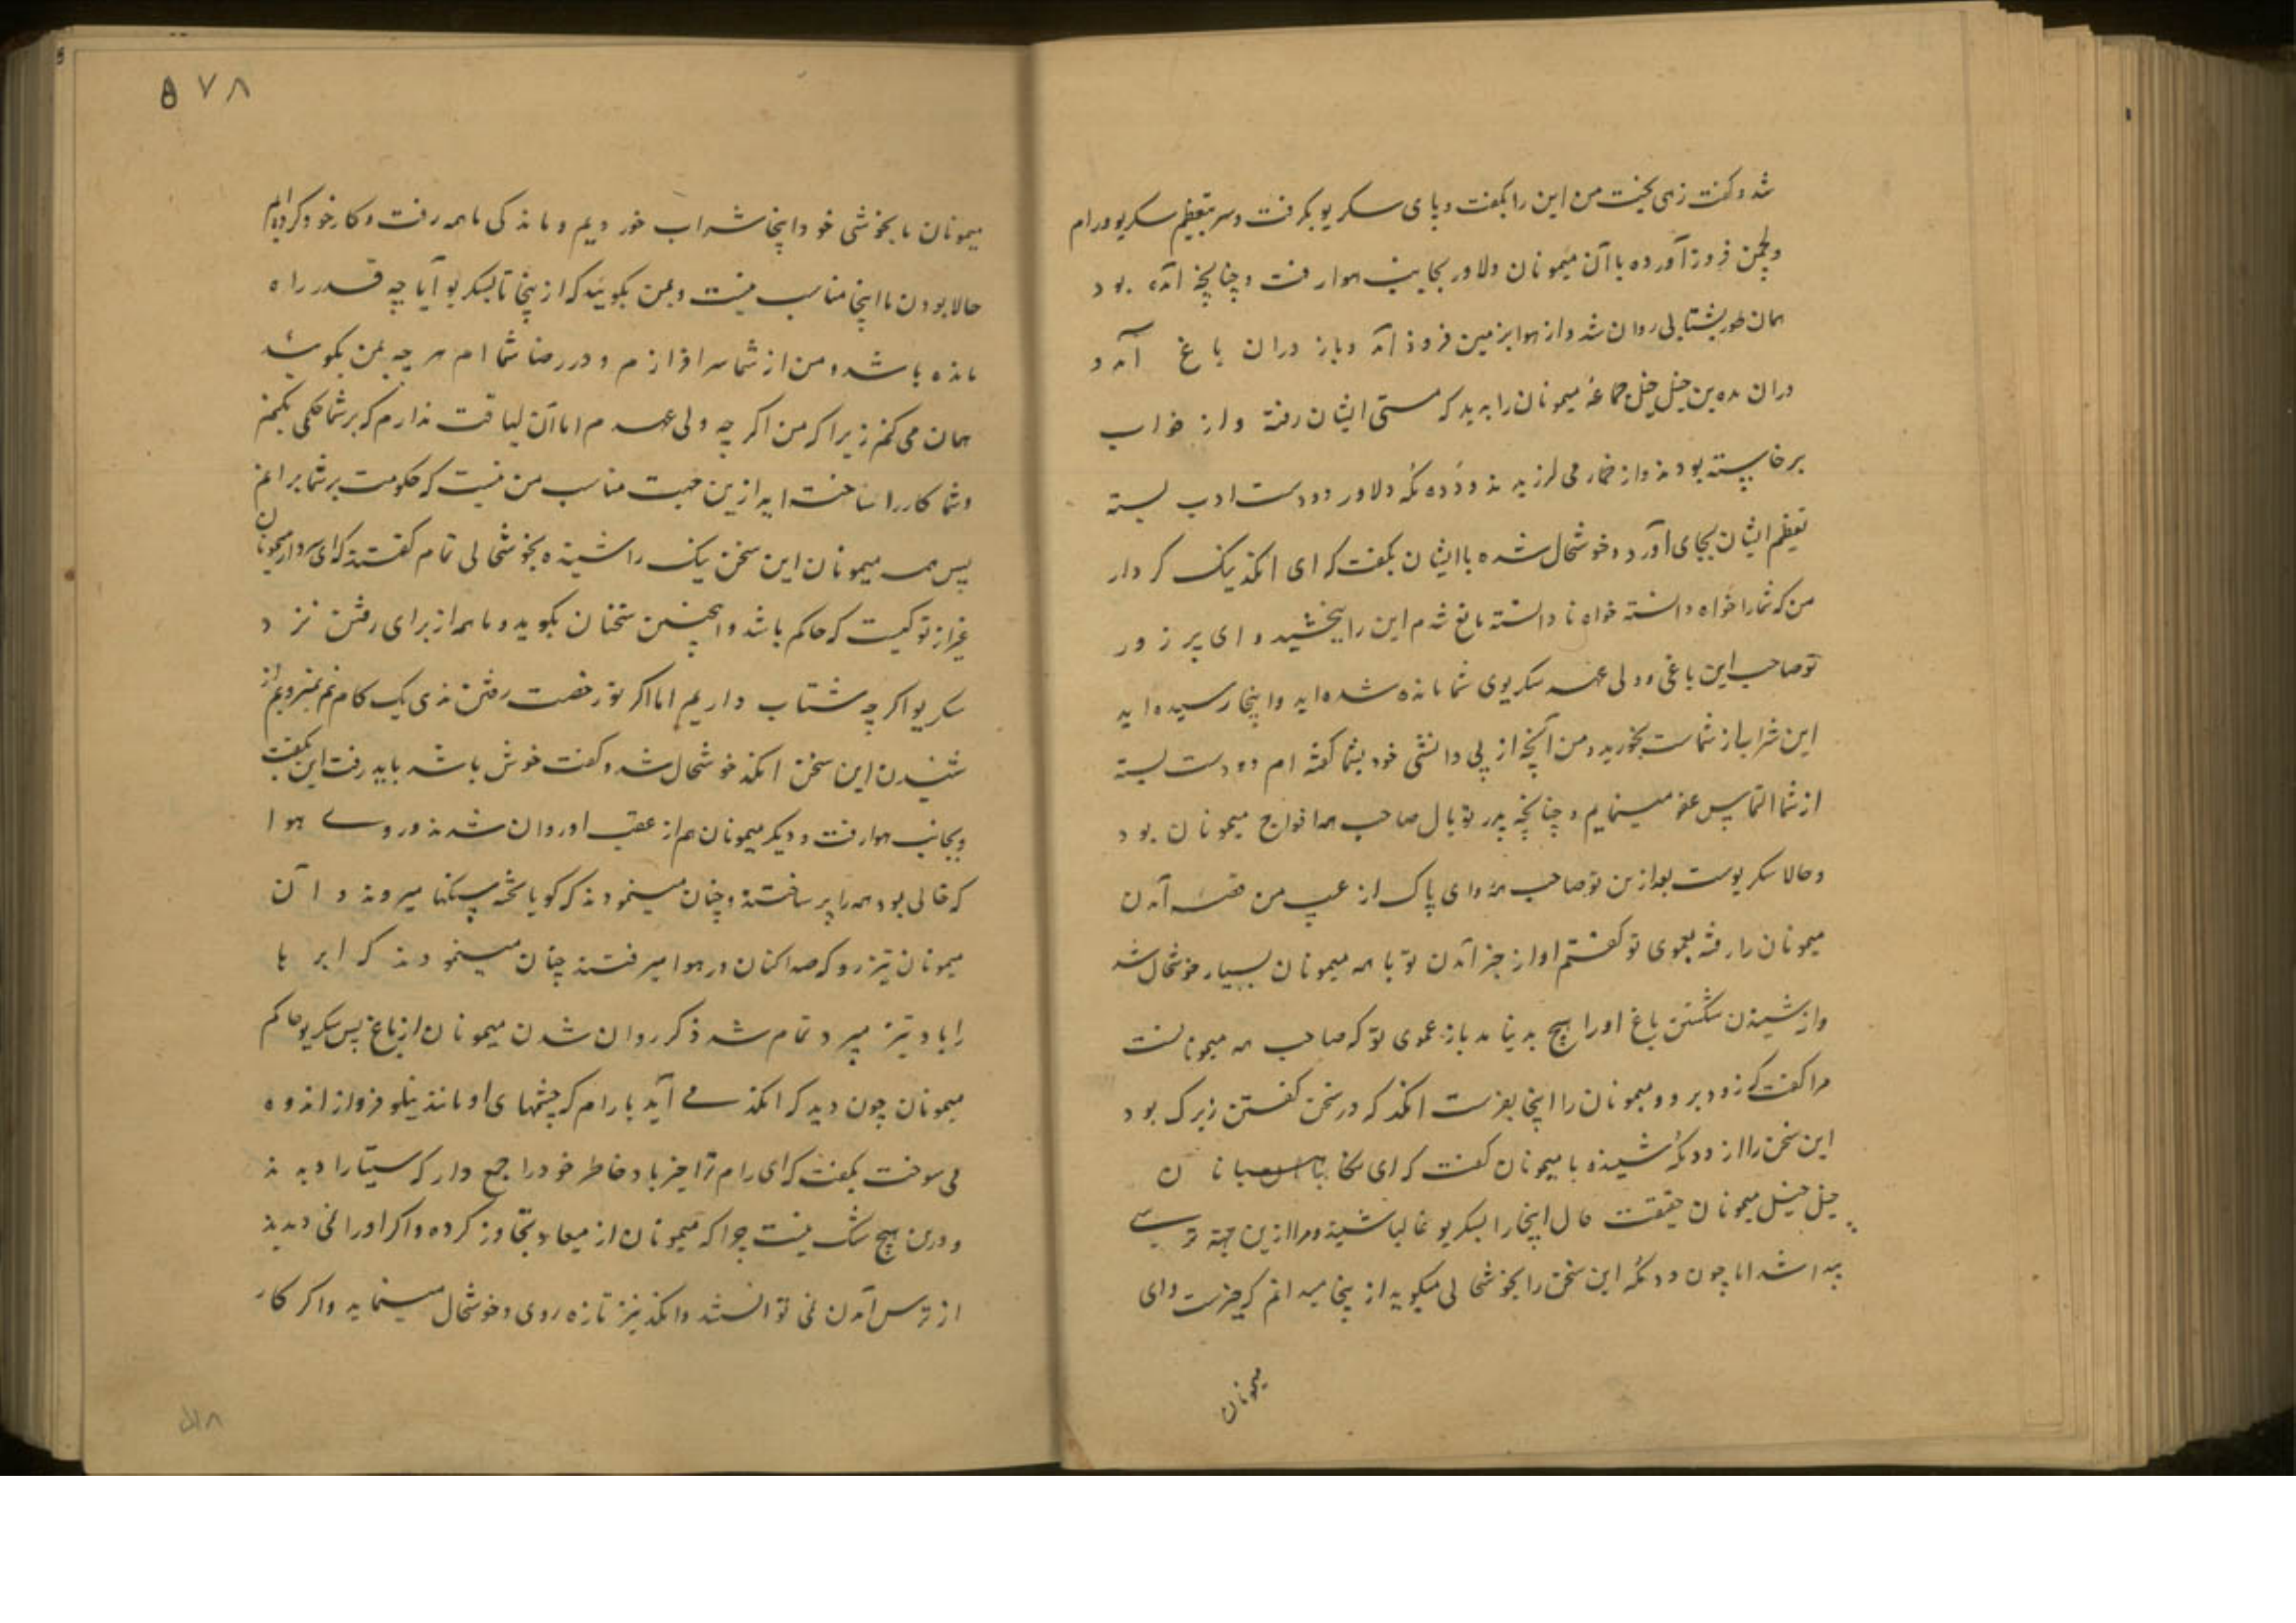 شد و گفت زهی بخت من این را بگفت و پای سکریو بگرفت و سر بتعظیم سکریو و رام
و لچمن فروز آورده باآن میمونان دلاور بجانب هوا رفت و چنانچه آمده بود
همان طور بشتابی روان شد و از هوا بزمین فروذ آمد و باز دران باغ آمد و
دران مده بن خیل خیل جماعۀ میمونان را بدید که مستی ایشان رفته و از خواب
برخاسته بودند و از خمار می لرزیدند و دده مکه دلاور دو دست ادب بسته
تعظیم ایشان بجای آورد و خوشحال شده باایشان بگفت که ای انکد نیک کردار
من که شما را خواه دانسته خواه نادانسته مانع شدم این را ببخشید و ای پر زور
تو صاحب این باغی و ولی عهد سکریوی شما مانده شده اید و اینجا رسیده اید
این شراب از شماست بخورید و من آنچه از بی دانشی خود بشما گفته ام دو دست بسته
از شما التماس عفو مینمایم و چنانچه پدر تو بال صاحب همه افواج میمونان بود
و حالا سکریوست بعد ازین تو صاحب همۀ و ای پاک از عیب من قصه آمدن
میمونان را رفته بعموی تو گفتم او از خبر آمدن تو با همه میمونان بسیار خوشحال شد
و از شنیدن شکستن باغ او را هیچ بد نیامد باز عموی تو که صاحب همه میمونانست
مرا گفت که زود برو و میمونان را اینجا بفرست انکد که در سخن گفتن زیرک بود
این سخن را از ددمکه شنیده با میمونان گفت که ای
خیل خیل میمونان حقیقت حال اینجا را سکریو غالبا شنیده و مرا ازین جهة ترسی
پیدا شد اما چون ددمکه این سخن را بخوشحالی میگوید از ینجا میدانم که خبرست و ای
میمونان
۵۷۸
میمونان ما بخوشی خود اینجا شراب خوردیم و ماندگی ما همه رفت و کار خود کرده ایم
حالا بودن ما اینجا مناسب نیست و بمن بگوئید که از ینجا تا سکریو آیا چه قدر راه
مانده باشد و من از شما سرافرازم و در رضا شما ام هر چه بمن بگوئید
همان می کنم زیرا که من اگر چه ولی عهدم اما آن لیاقت ندارم که بر شما حکمی بکنم
و شما کار را ساخته اید ازین جهت مناسب من نیست که حکومت بر شما برانم
پس همه میمونان این سخن نیک را شنیده بخوشحالی تمام گفتند که ای سردار میمونان
غیر از تو کیست که حاکم باشد و اینچنین سخنان بگوید و ما همه از برای رفتن نزد
سکریو اگر چه شتاب داریم اما اگر تو رخصت رفتن ندی یک گام هم نمیرویم از
شنیدن این سخن انکد خوشحال شد و گفت خوش باشد باید رفت این بگفت
و بجانب هوا رفت و دیگر میمونان هم از عقب او روان شدند و روی هوا
که خالی بود همه را پر ساختند و چنان مینمودند که گویا تخته سنگها میروند و آن
میمونان تیزرو که صدا کنان در هوا میرفتند چنان مینمودند که ابر ها
را باد تیز میبرد تمام شد ذکر روان شدن میمونان از باغ پس سکریو حاکم
میمونان چون دید که انکد می آید با رام که چشمهای او مانند نیلوفر و از اندوه
می سوخت بگفت که ای رام ترا خبر باد خاطر خود را جمع دار که سیتا را دیدند
و درین هیچ شک نیست چرا که میمونان از میعاد تجاوز کرده و اگر او را نمی دیدند
از ترس آمدن نمی توانستند و انکد نیز تازه روی و خوشحال مینماید و اگر کار